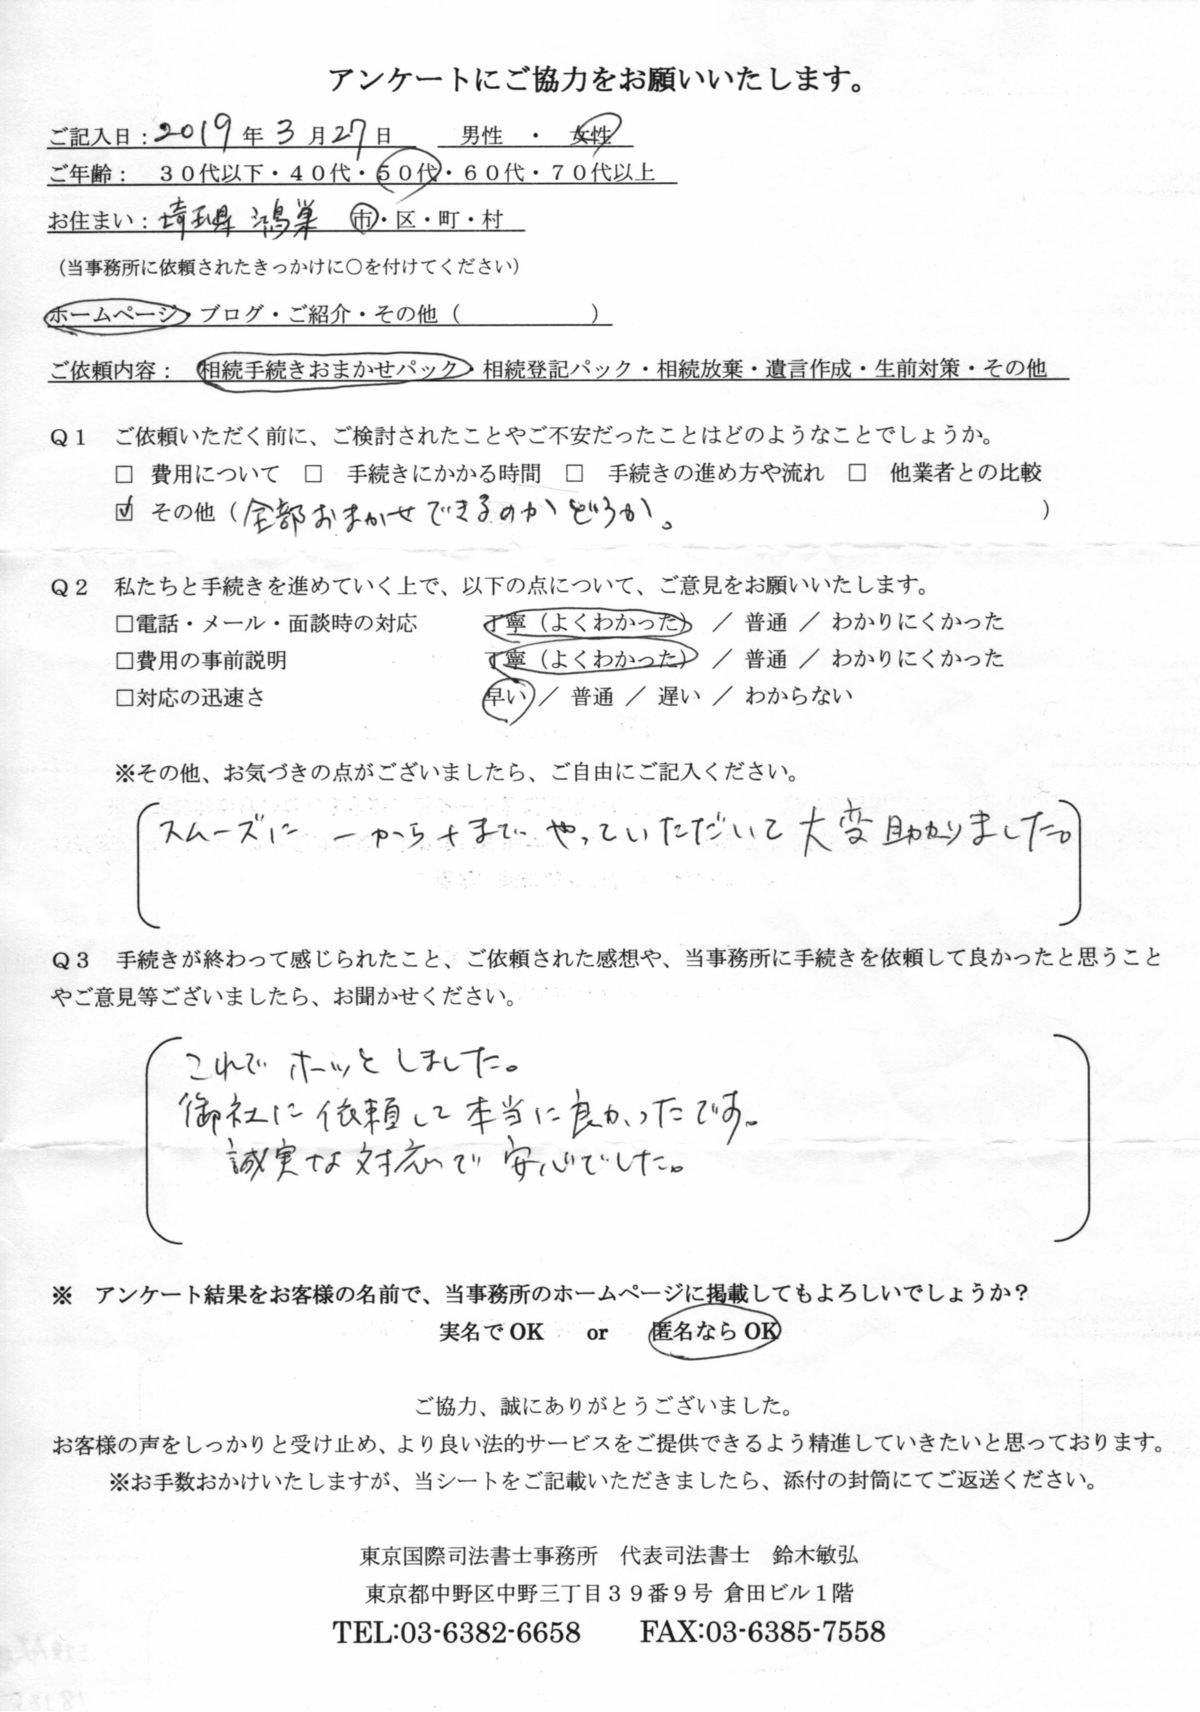 アンケートにご協力をお願いいたします。
ご記入日：2019年3月27日　男性　・　女性
ご年齢：　３０代以下・４０代・５０代・６０代・７０代以上
お住まい：埼玉県 鴻巣　市・区・町・村
（当事務所に依頼されたきっかけに○を付けてください）
ホームページ・ブログ・ご紹介・その他（　　　　　　）
ご依頼内容：　相続手続きおまかせパック・相続登記パック・相続放棄・遺言作成・生前対策・その他
Ｑ１　ご依頼いただく前に、ご検討されたことやご不安だったことはどのようなことでしょうか。
□ 費用について　□ 手続きにかかる時間　□ 手続きの進め方や流れ　□ 他業者との比較
☑ その他（全部おまかせできるのかどうか。　）
Ｑ２　私たちと手続きを進めていく上で、以下の点について、ご意見をお願いいたします。
□電話・メール・面談時の対応　丁寧（よくわかった）　／ 普通 ／ わかりにくかった
□費用の事前説明　丁寧（よくわかった）　／ 普通 ／ わかりにくかった
□対応の迅速さ　早い ／ 普通 ／ 遅い ／ わからない
※その他、お気づきの点がございましたら、ご自由にご記入ください。
スムーズに 一から十まで やっていただいて 大変助かりました。
Ｑ３　手続きが終わって感じられたこと、ご依頼された感想や、当事務所に手続きを依頼して良かったと思うこと
やご意見等ございましたら、お聞かせください。
これで ホーッと しました。
御社に 依頼して 本当に良かったです。
誠実な対応で 安心でした。
※　アンケート結果をお客様の名前で、当事務所のホームページに掲載してもよろしいでしょうか？
実名で OK　　or　　匿名なら OK
ご協力、誠にありがとうございました。
お客様の声をしっかりと受け止め、より良い法的サービスをご提供できるよう精進していきたいと思っております。
※お手数おかけいたしますが、当シートをご記載いただきましたら、添付の封筒にてご返送ください。
東京国際司法書士事務所　代表司法書士　鈴木敏弘
東京都中野区中野三丁目３９番９号 倉田ビル１階
TEL:03-6382-6658　　FAX:03-6385-7558